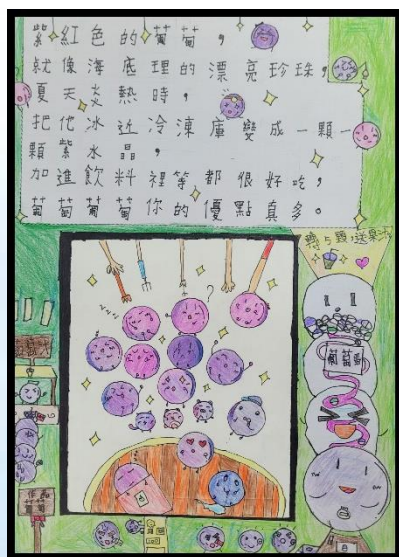 紫紅色的葡萄，
就像海底理的漂亮珍珠，
夏天炎熱時，
把他冰近冷凍庫變成一顆一
顆紫水晶，
加進飲料裡等都很好吃，
葡萄葡萄你的優點真多。
轉5顆，送果汁
葡萄